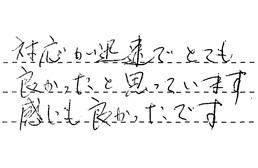 対応が迅速でとても
良かったと思っています
感じも良かったです